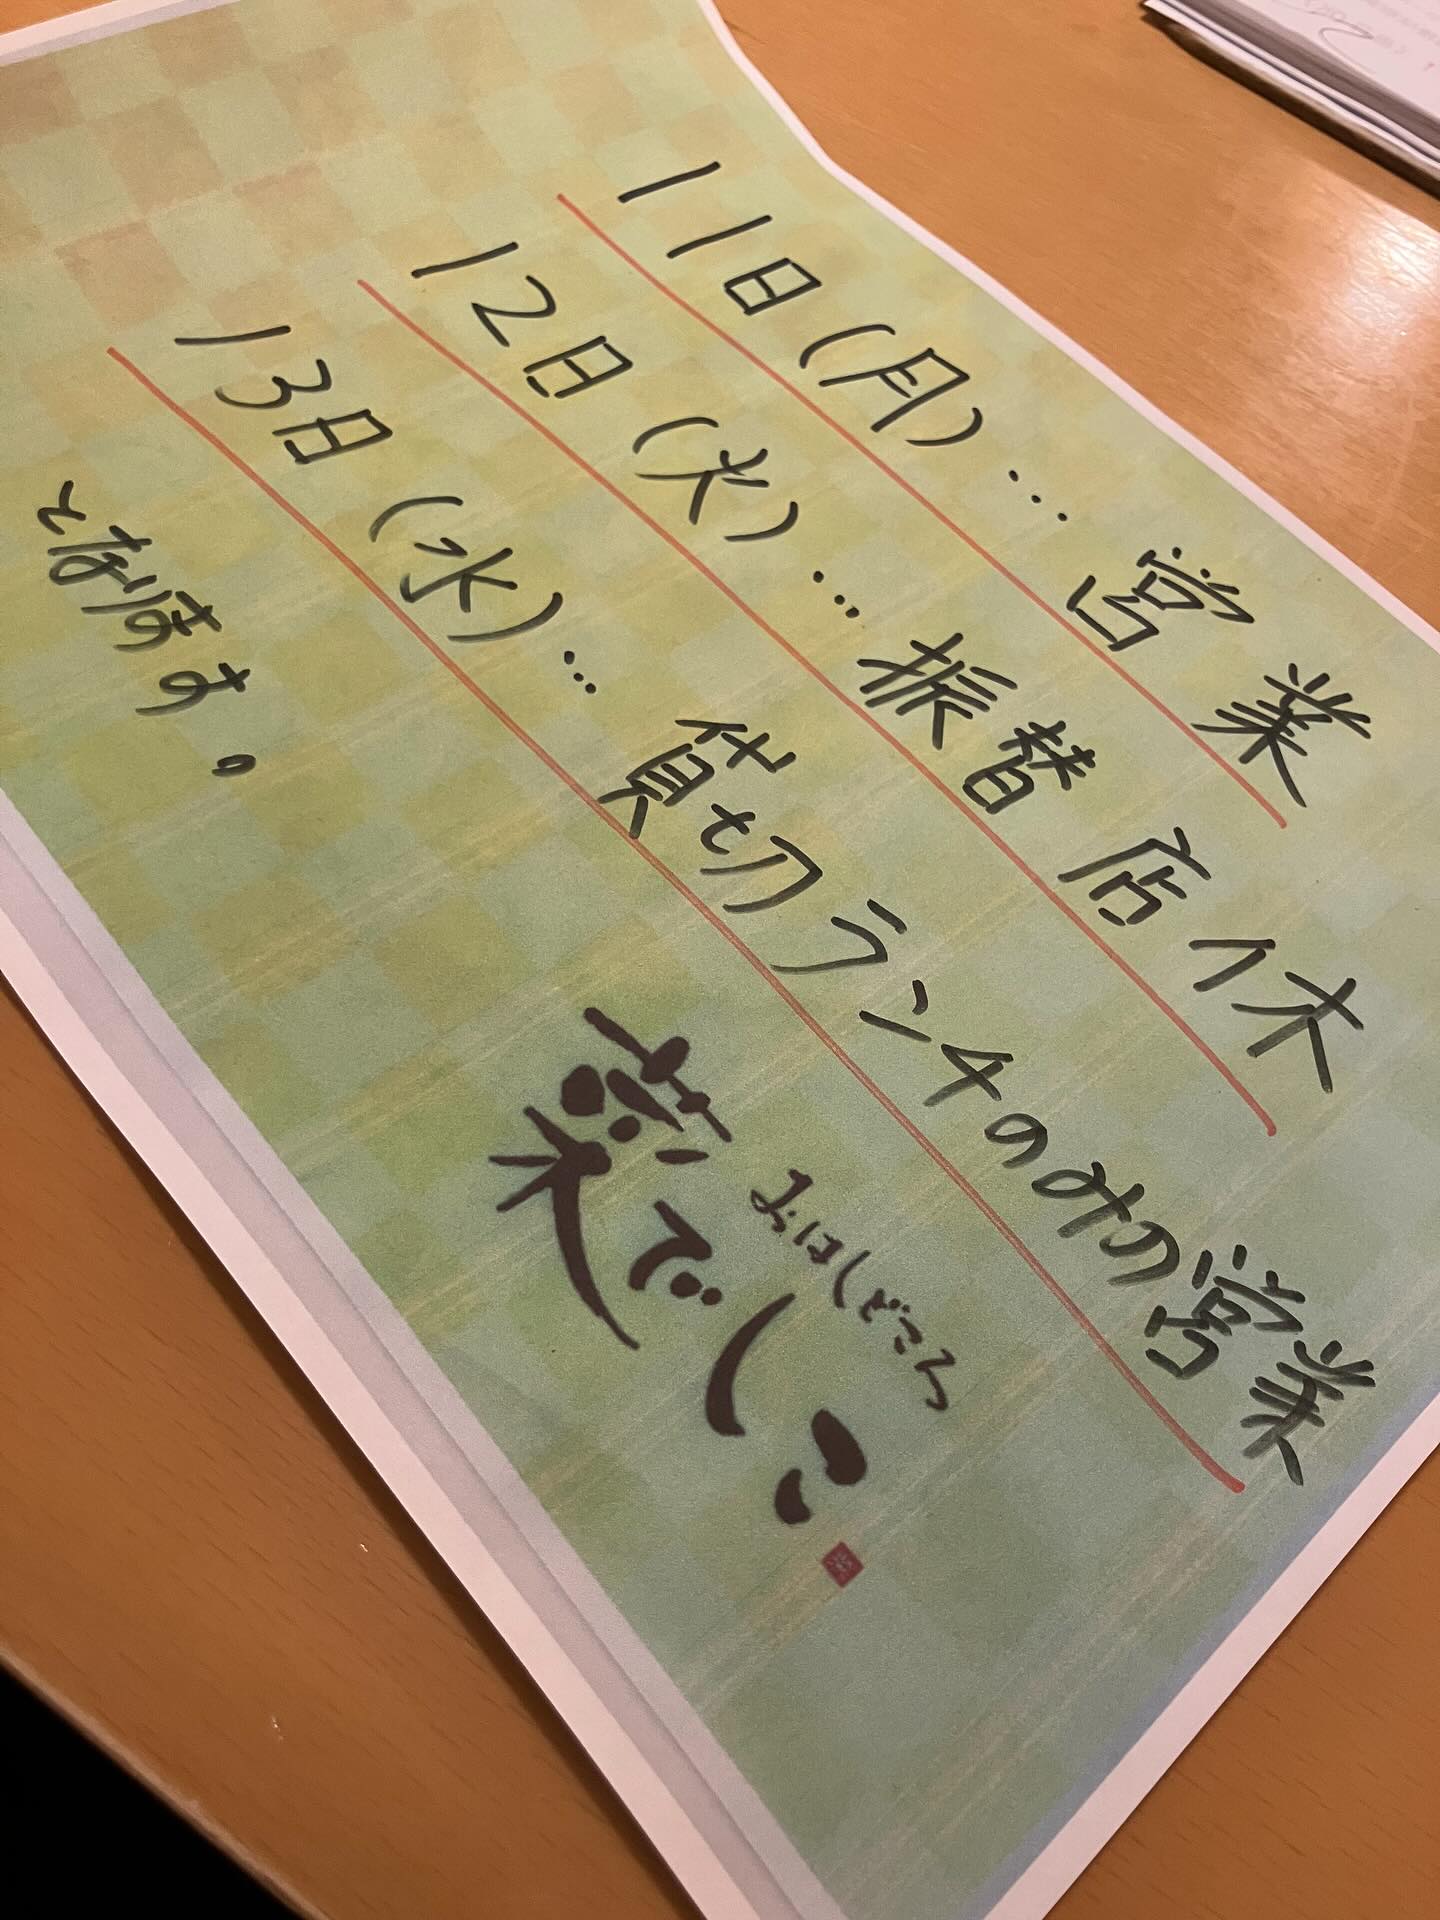 11日(月)… 営業
12日(火)… 振替店休
13日(水)… 貸切ランチのみの営業
となります。
おはしどころ
菜でしこ